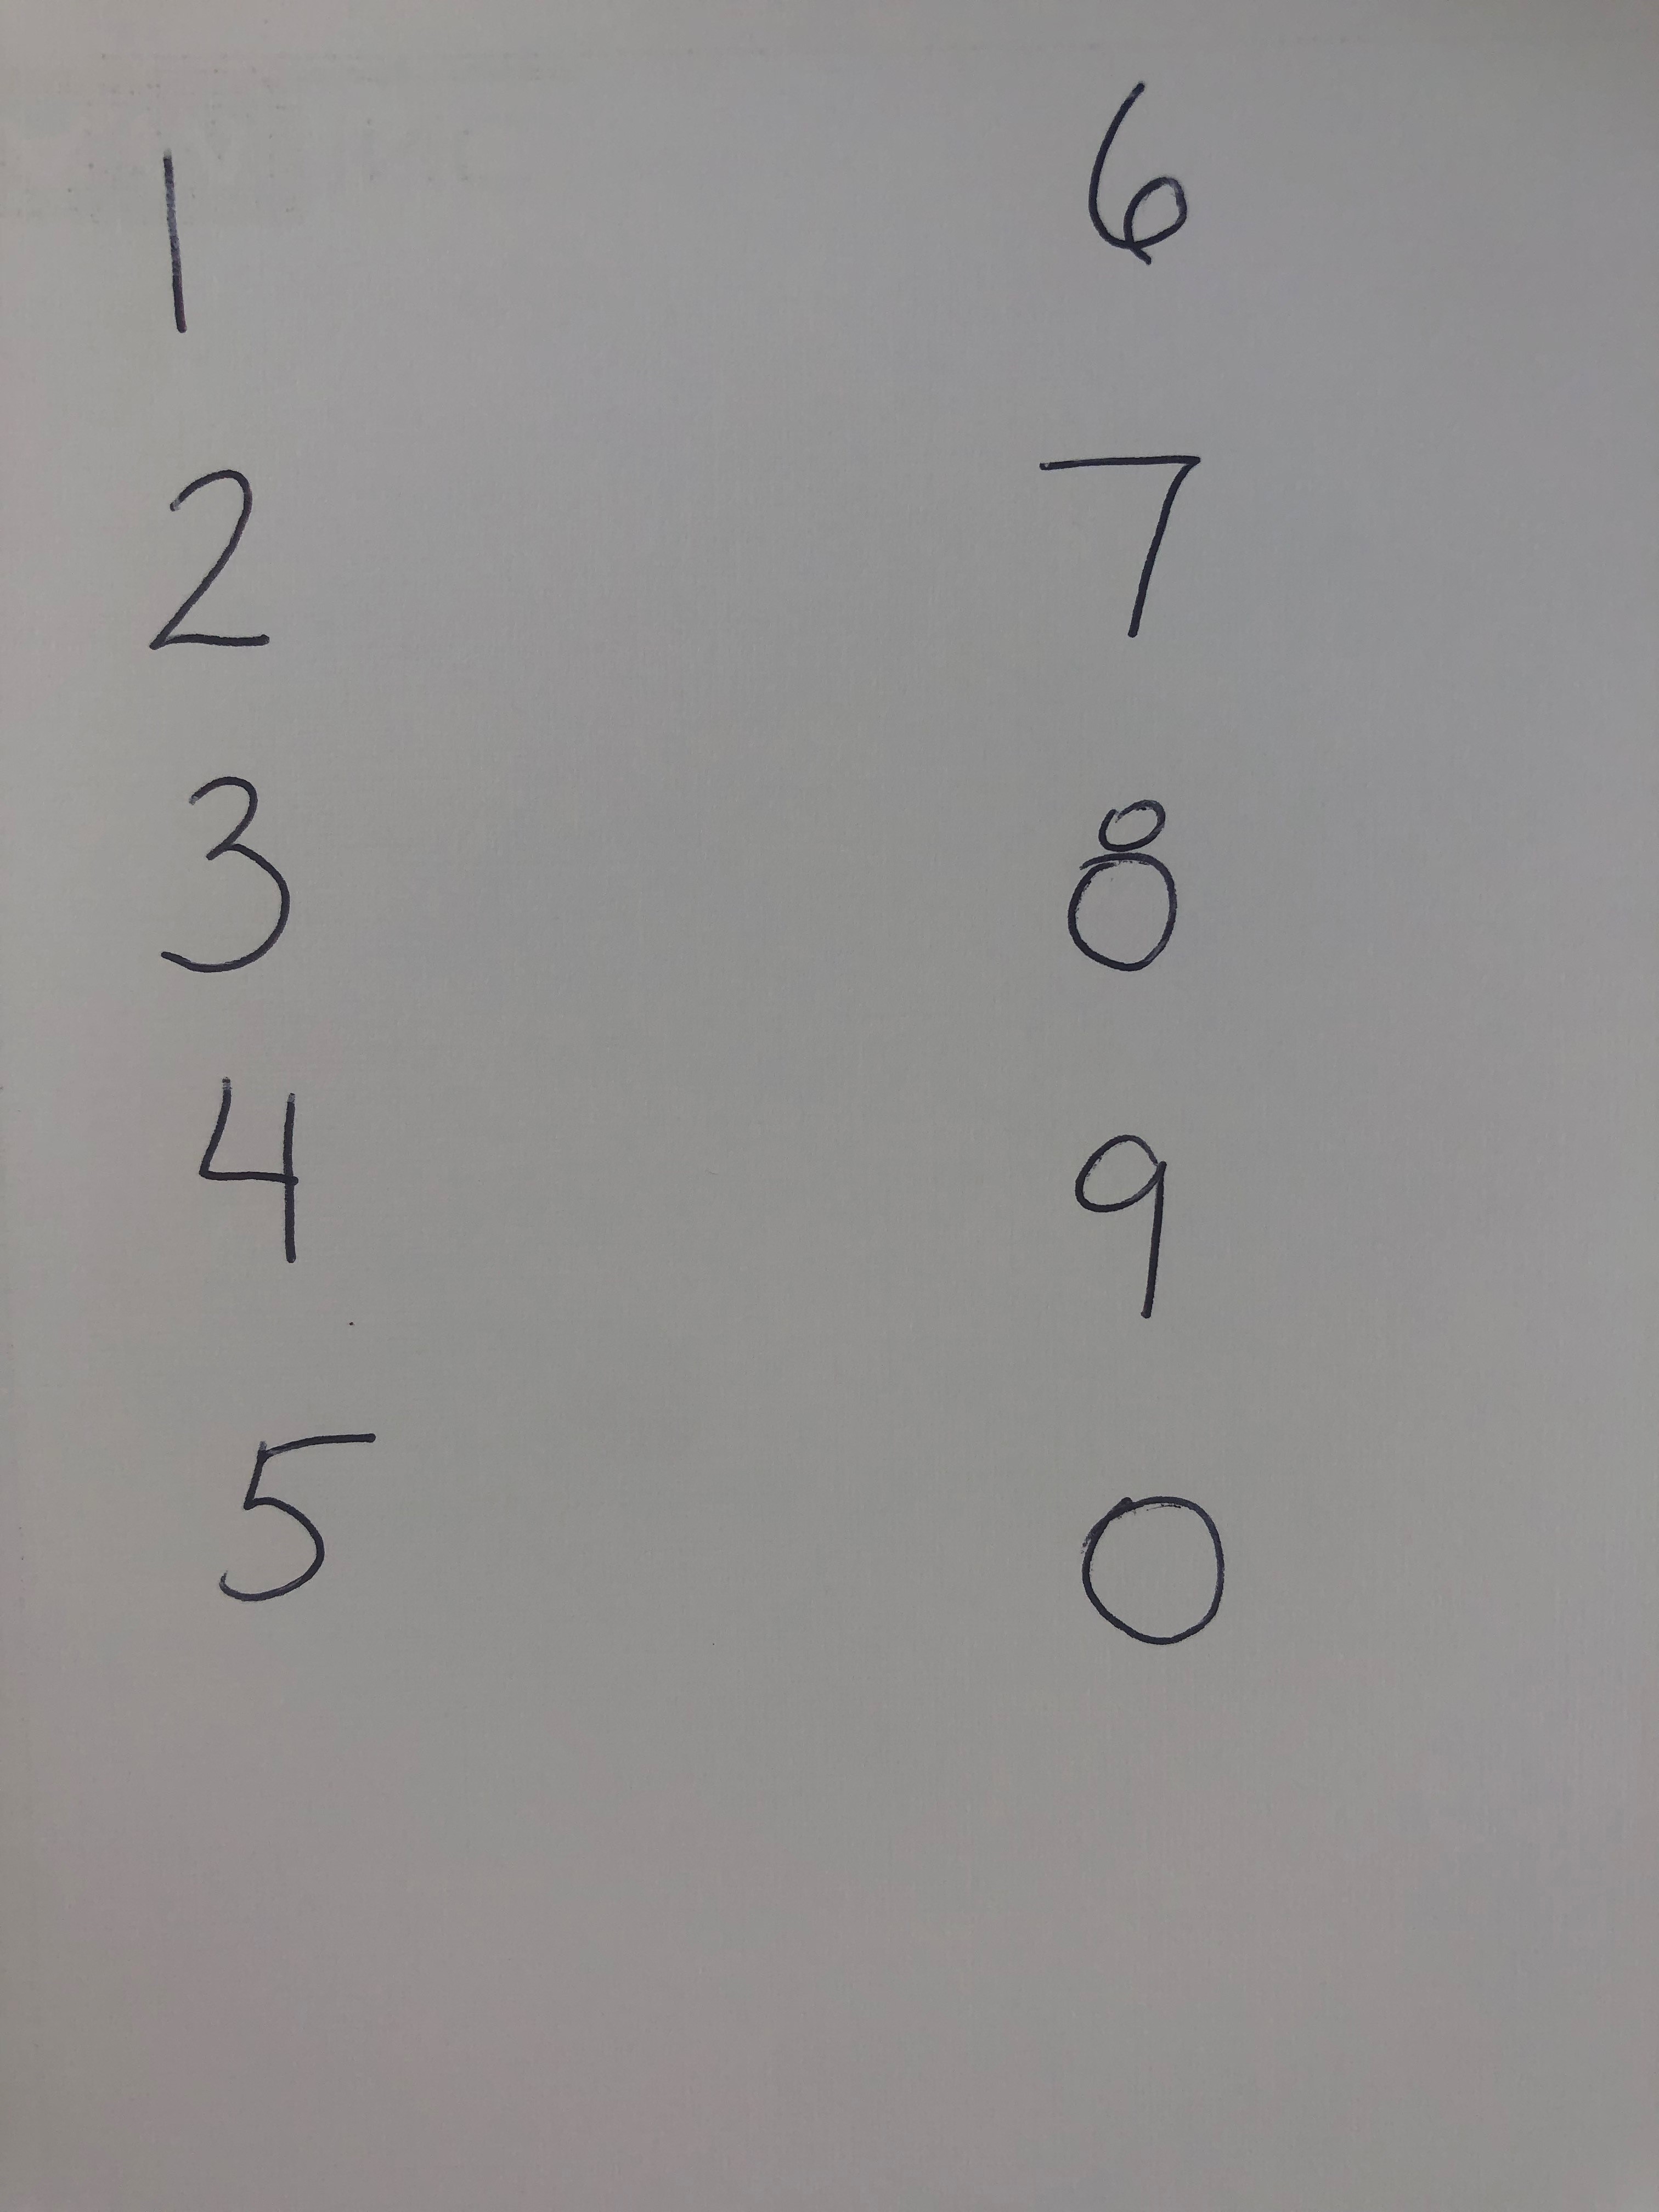 1
2
3
4
5
6
7
8
9
0